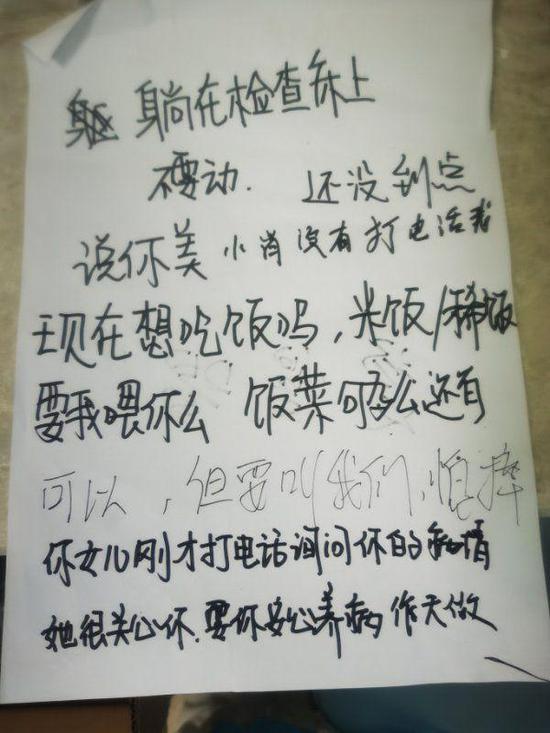 躺在检查床上
不要动. 还没到点
说你美 小肖没有打电话我
现在想吃饭吗,米饭/稀饭
要我喂你么 饭菜可口么还有
可以,但要叫我们,怕摔
你女儿刚才打电话询问你的病情
她很关心你.要你安心养病 作天做